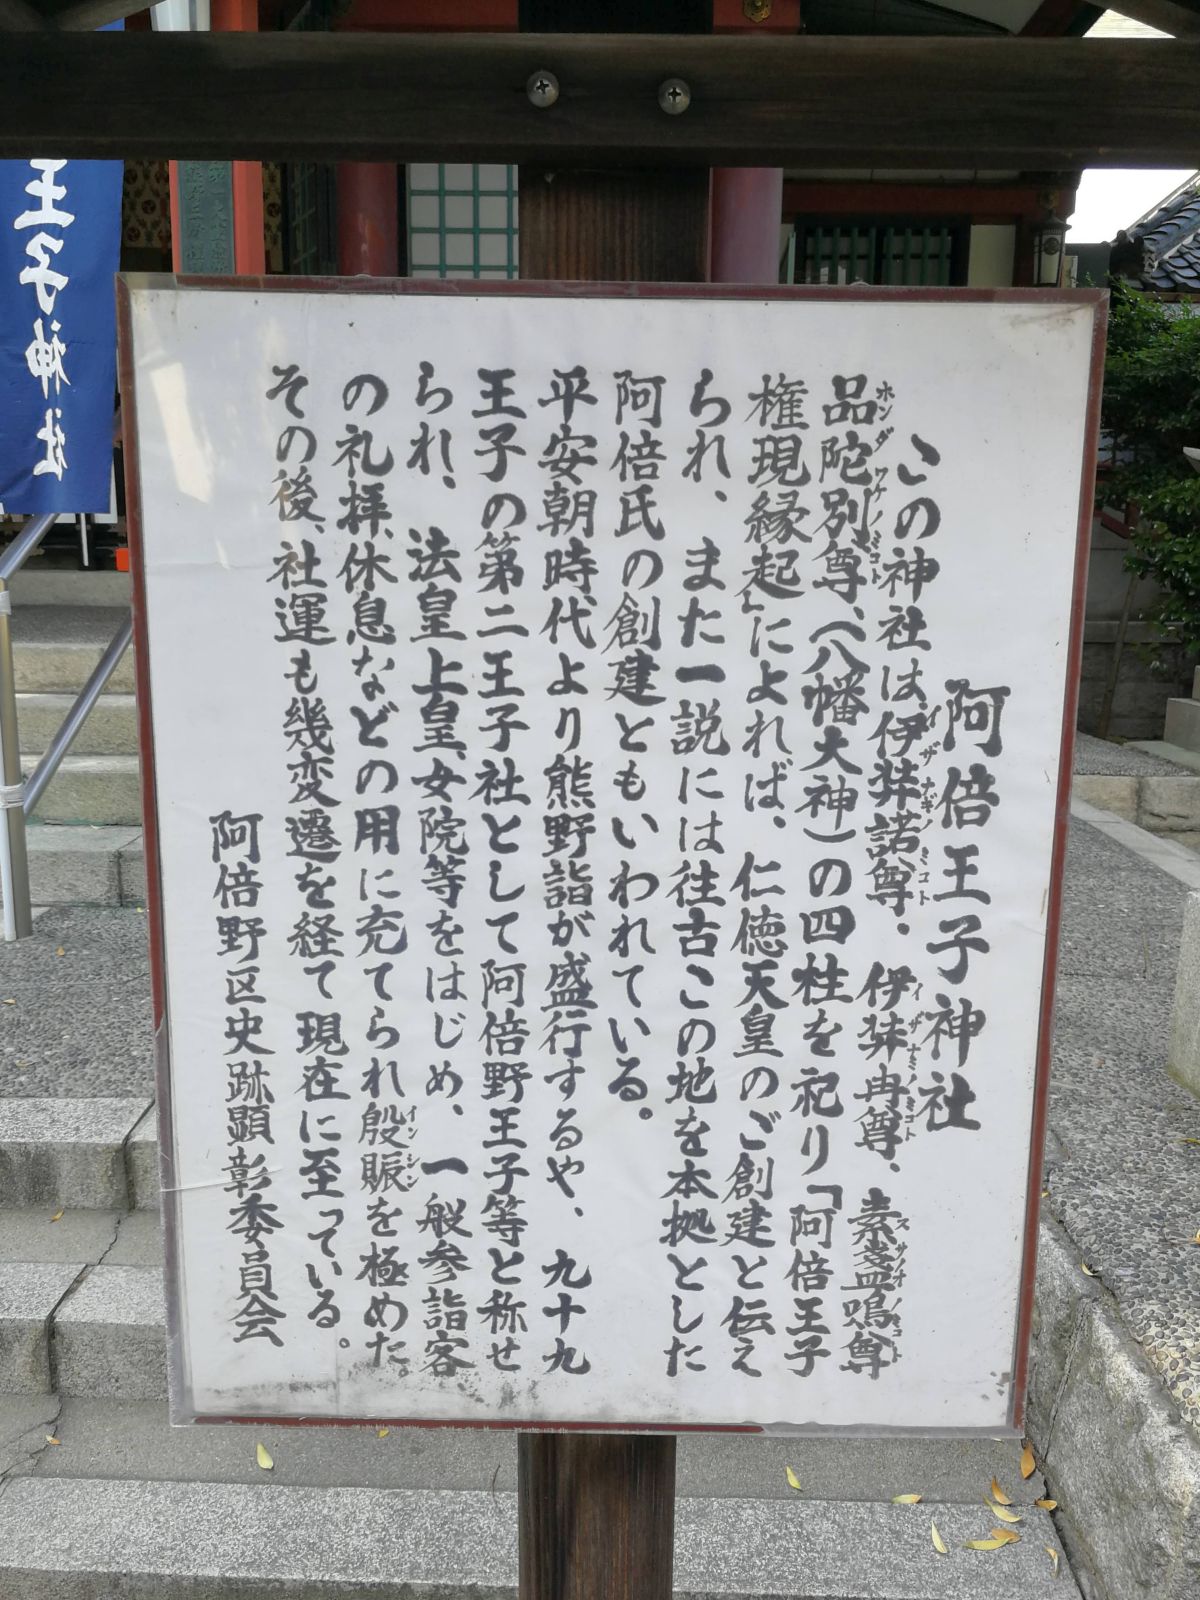 阿倍王子神社
この神社は、伊弉諾尊、伊弉冉尊、素盞嗚尊
イザナギノミコト
イザナミノミコト
スサノオノミコト
品陀別尊、(八幡大神)の四柱を祀り「阿倍王子
ホンダワケノミコト
権現縁起」によれば、仁徳天皇のご創建と伝え
られ、また一説には往古この地を本拠とした
阿倍氏の創建ともいわれている。
平安朝時代より熊野詣が盛行するや、九十九
王子の第二王子社として阿倍野王子等と称せ
られ、法皇、上皇、女院等をはじめ、一般参詣客
の礼拝、休息などの用に充てられ殷賑を極めた。
インシン
その後、社運も幾変遷を経て現在に至っている。
阿倍野区史跡顕彰委員会
王子神社